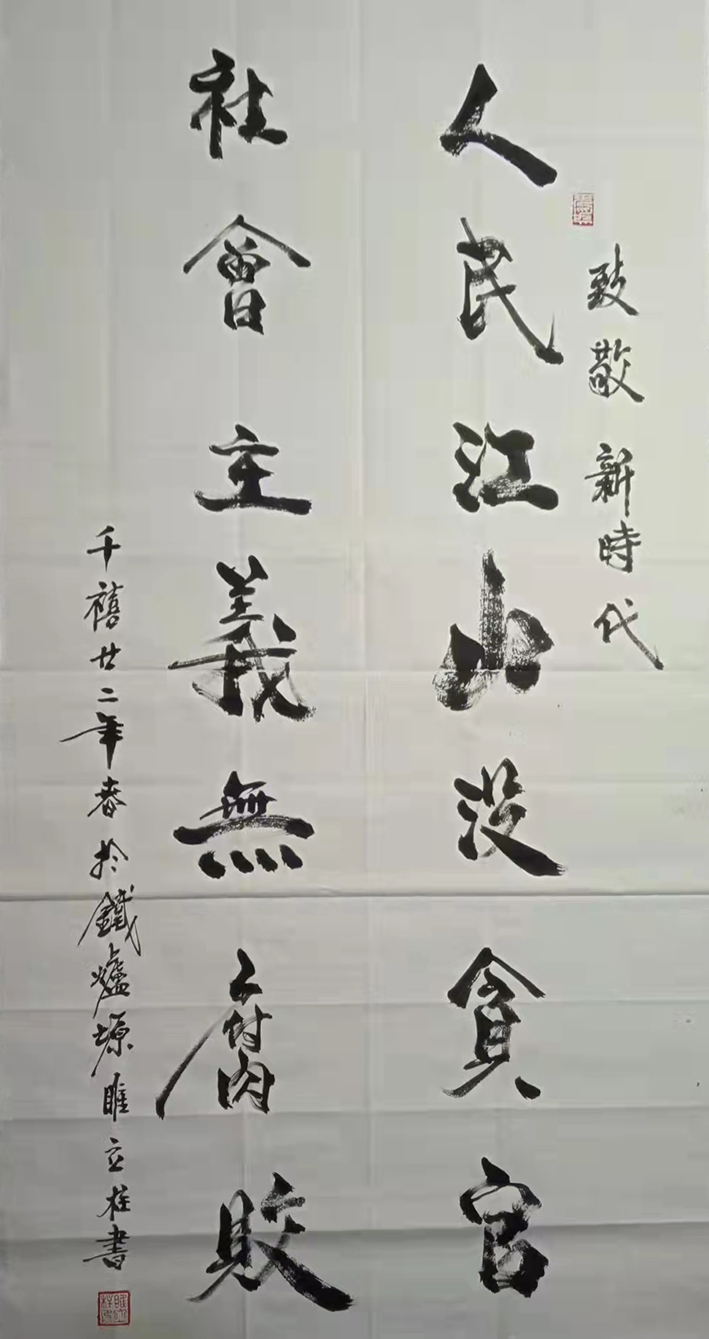 致敬新時代
人民江山没貪官
社會主義無腐敗
千禧廿二年春於鐵爐塬睢立柱書